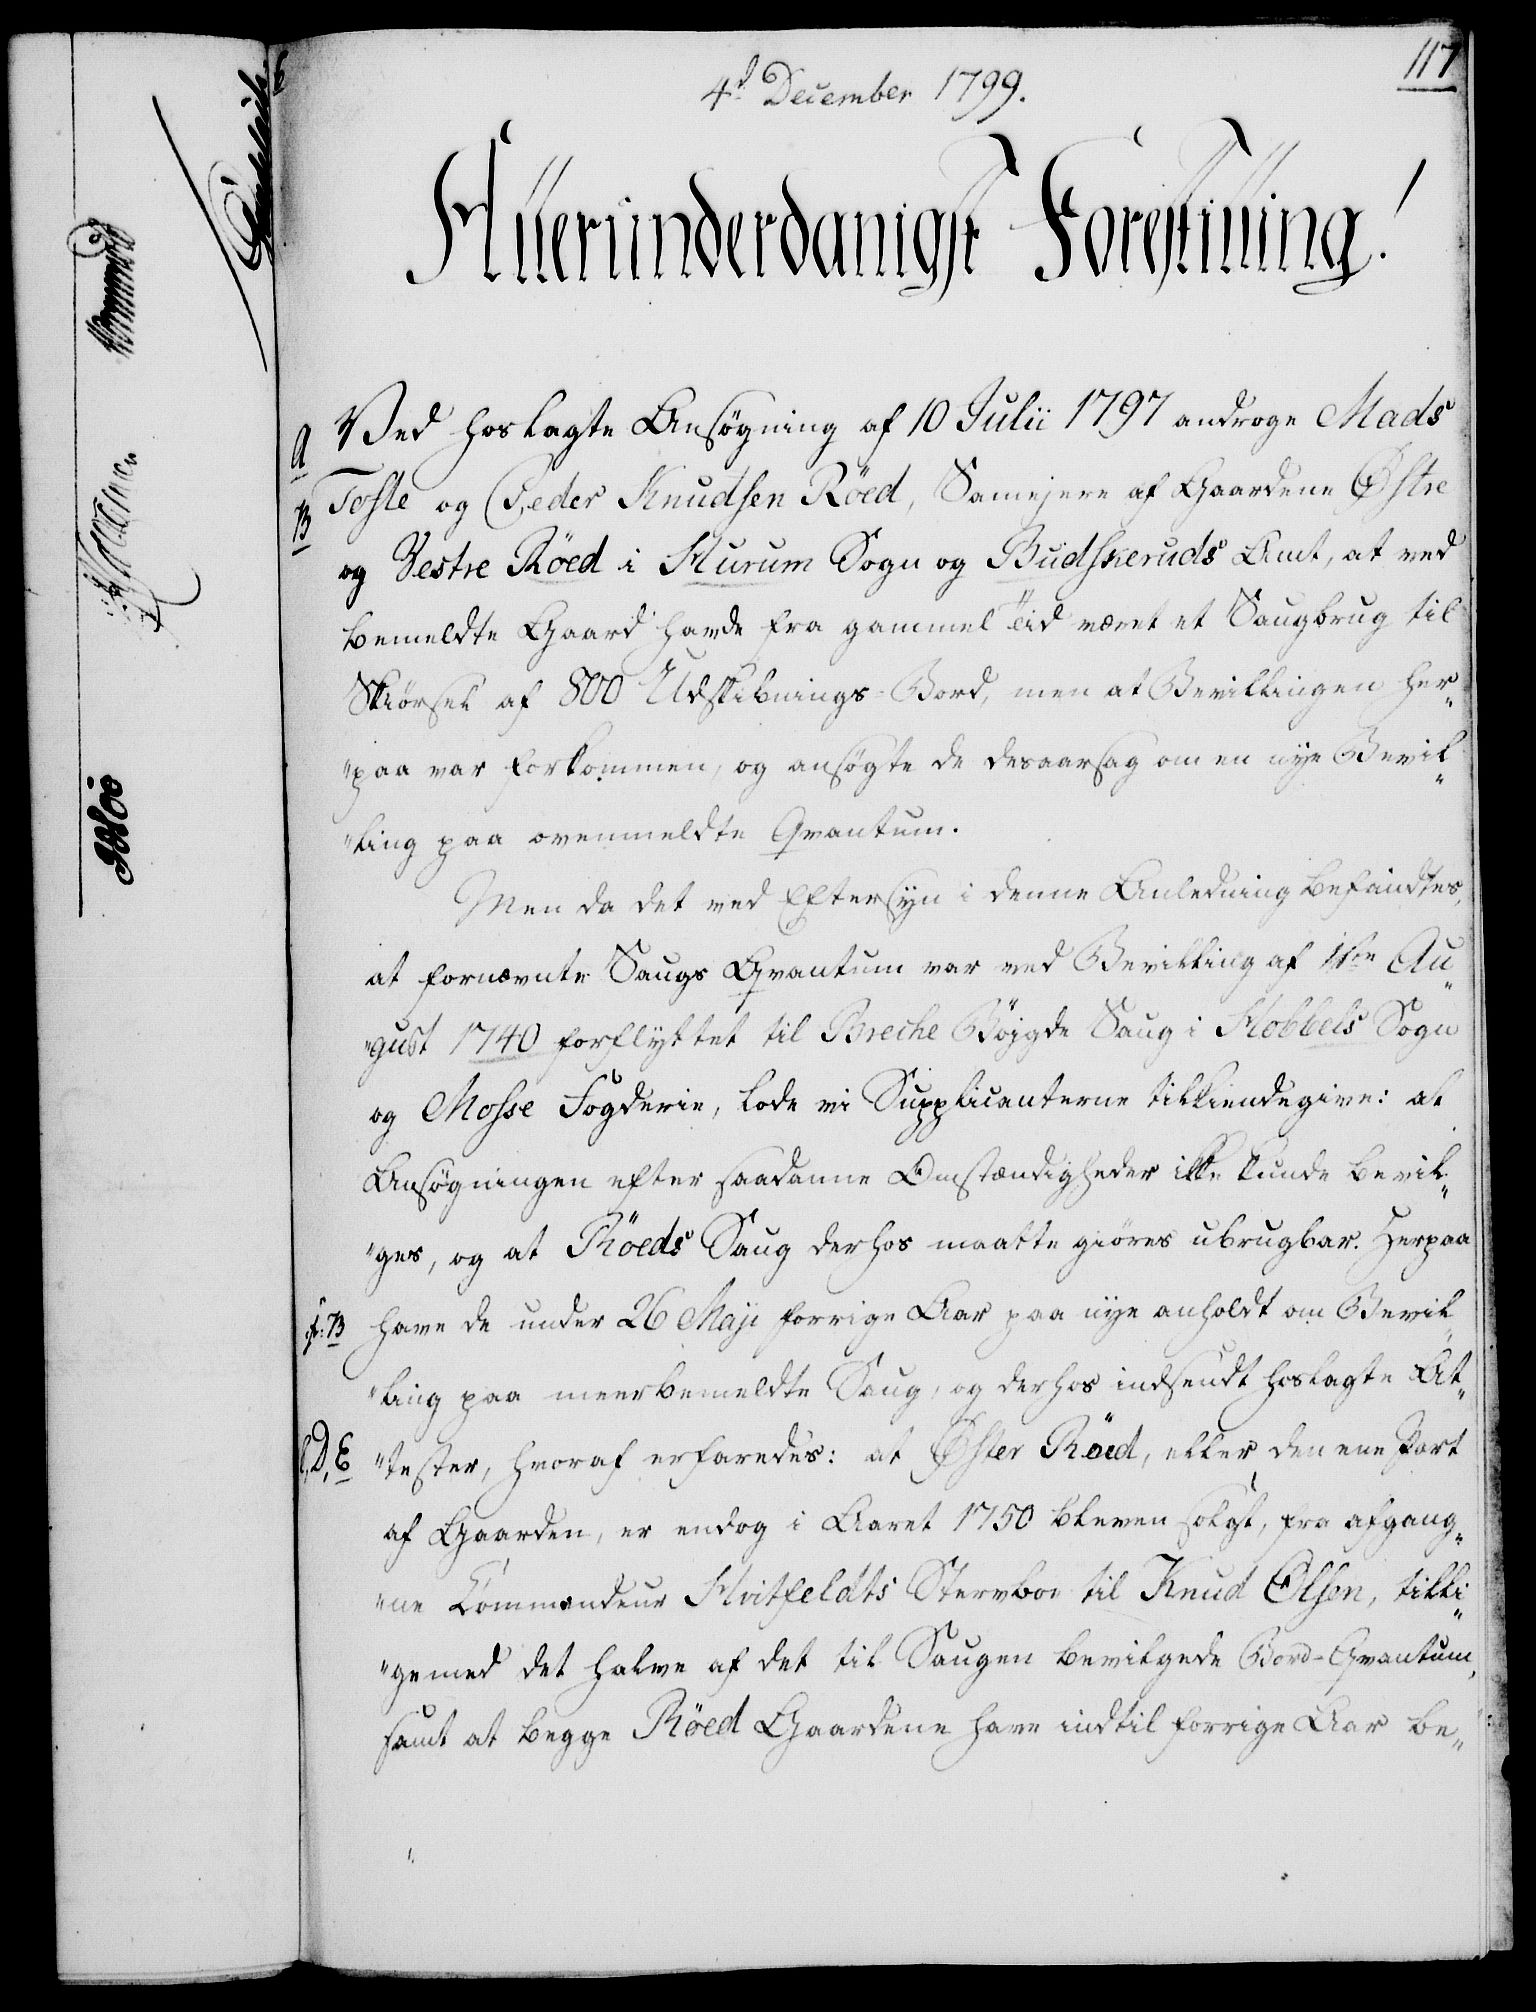 117
4d December 1799.
Allerunderdanigst Forestilling!
A Ved hoslagte Ansøgning af 10 Julii 1797 androge Mads
B Tofte og Peder Knudsen Röed, Samejere af Gaardene Østre
og Vestre Röed i Hurum Sogn og Budskeruds Amt, at ved
bemeldte Gaard havde fra gammel Tiid været et Saugbrug til
Skiørsel af 800 Udskibnings-Bord, men at Bevillingen her„
„paa var forkommen, og ansøgte de desaarsag om en nye Bevil„
„ling paa ovenmeldte Qvantum.
Men da det ved Eftersyn i denne Anledning befandtes,
at fornævnte Saugs Qvantum var ved Bevilling af Au„
„gust 1740 forflyttet til Breche Böigde Saug i Hobbels Sogn
og Mosse Fogderie, lode vi Supplicanterne tilkiendegive: at
Ansøgningen efter saadanne Omstændigheder ikke kunde bevil„
„ges, og at Röeds Saug derhos maatte giøres ubrugbar. Herpaa
cf: B have de under 26 Maji forrige Aar paa nye anholdt om Bevil„
„ling paa meerbemeldte Saug, og derhos indsendt hoslagte At„
C, D, E „tester, hvoraf erfaredes: at Øster Röed, eller den ene Part
af Gaarden, er endog i Aaret 1750 bleven solgt, fra afgang„
„ne Commandeur Hvitfeldts Stervboe til Knud Olsen, tilli„
„gemed det halve af det til Saugen bevilgede Bord-Qvantum,
samt at begge Röed Gaardene have indtil forrige Aar be„